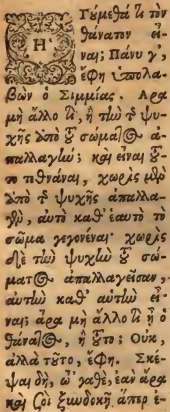 Ἡγύμεθά τι τὸν
θάνατον εἶ-
ναι; Πάνυ γ',
ἔφη ὑπολα-
βὼν ὁ Σιμμίας. Ἆρα
μὴ ἄλλο τι, ἢ τὴν τῆς ψυ-
χῆς ἀπὸ τοῦ σώματος ἀ-
παλλαγήν; καὶ εἶναι τοῦ-
το τεθνάναι, χωρὶς μὲν
ἀπὸ τῆς ψυχῆς ἀπαλλα-
γὲν, αὐτὸ καθ' ἑαυτὸ τὸ
σῶμα γεγονέναι· χωρὶς
δὲ τὴν ψυχὴν τοῦ σώ-
ματος ἀπαλλαγεῖσαν,
αὐτὴν καθ' αὑτὴν εἶ-
ναι; ἆρα μὴ ἄλλο τι ἢ ὁ
θάνατος, ἢ τοῦτο; Οὐκ,
ἀλλὰ τοῦτο, ἔφη. Σκέ-
ψαι δὴ, ὦ 'γαθὲ, ἐὰν ἄρα
καὶ σοὶ ξυνδοκῇ ἅπερ ἐ-